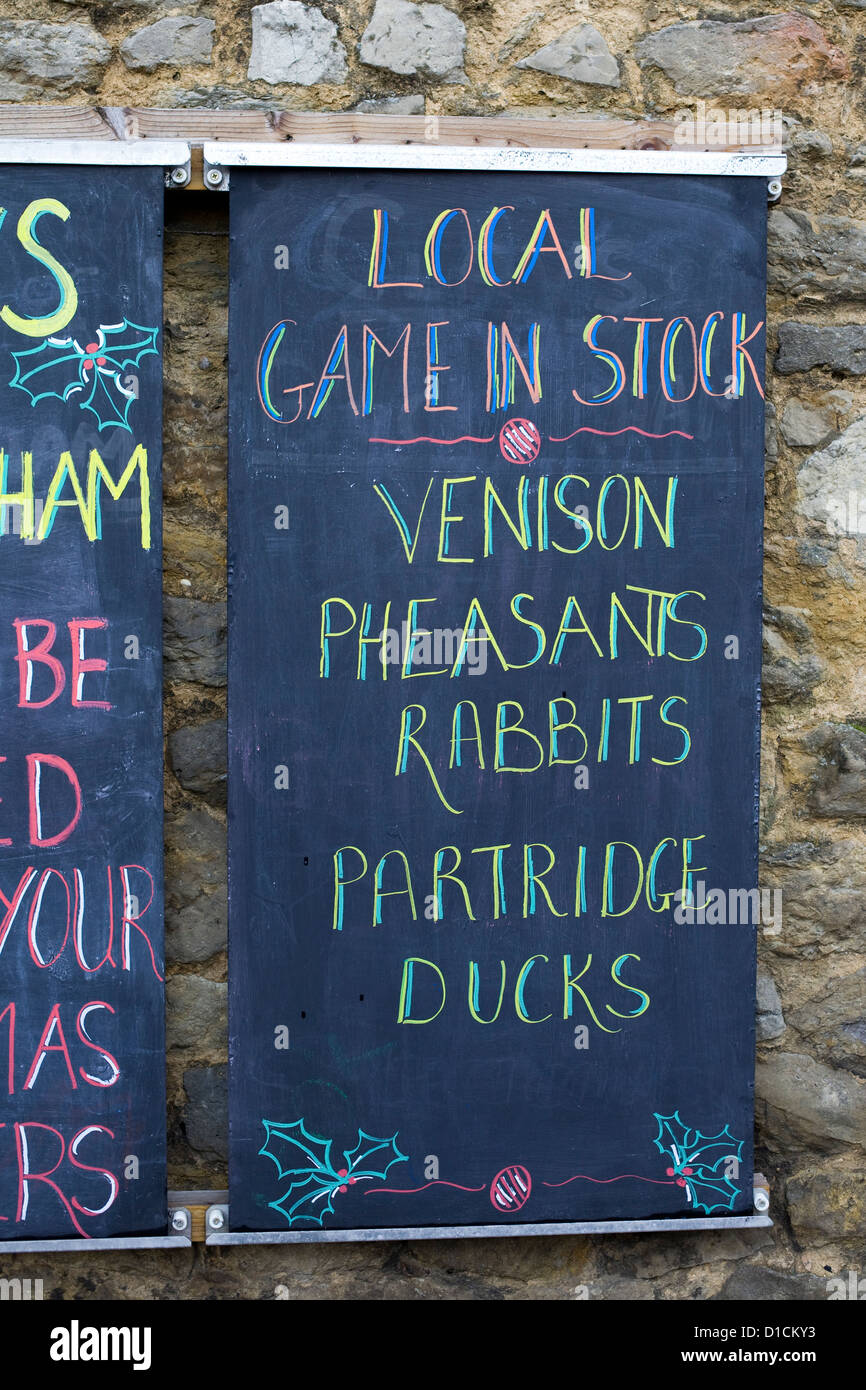 S
HAM
BE
ED
YOUR
MAS
ERS
LOCAL
GAME IN STOCK
VENISON
PHEASANTS
RABBITS
PARTRIDGE
DUCKS
alamy
Image ID: D1CKY3
www.alamy.com